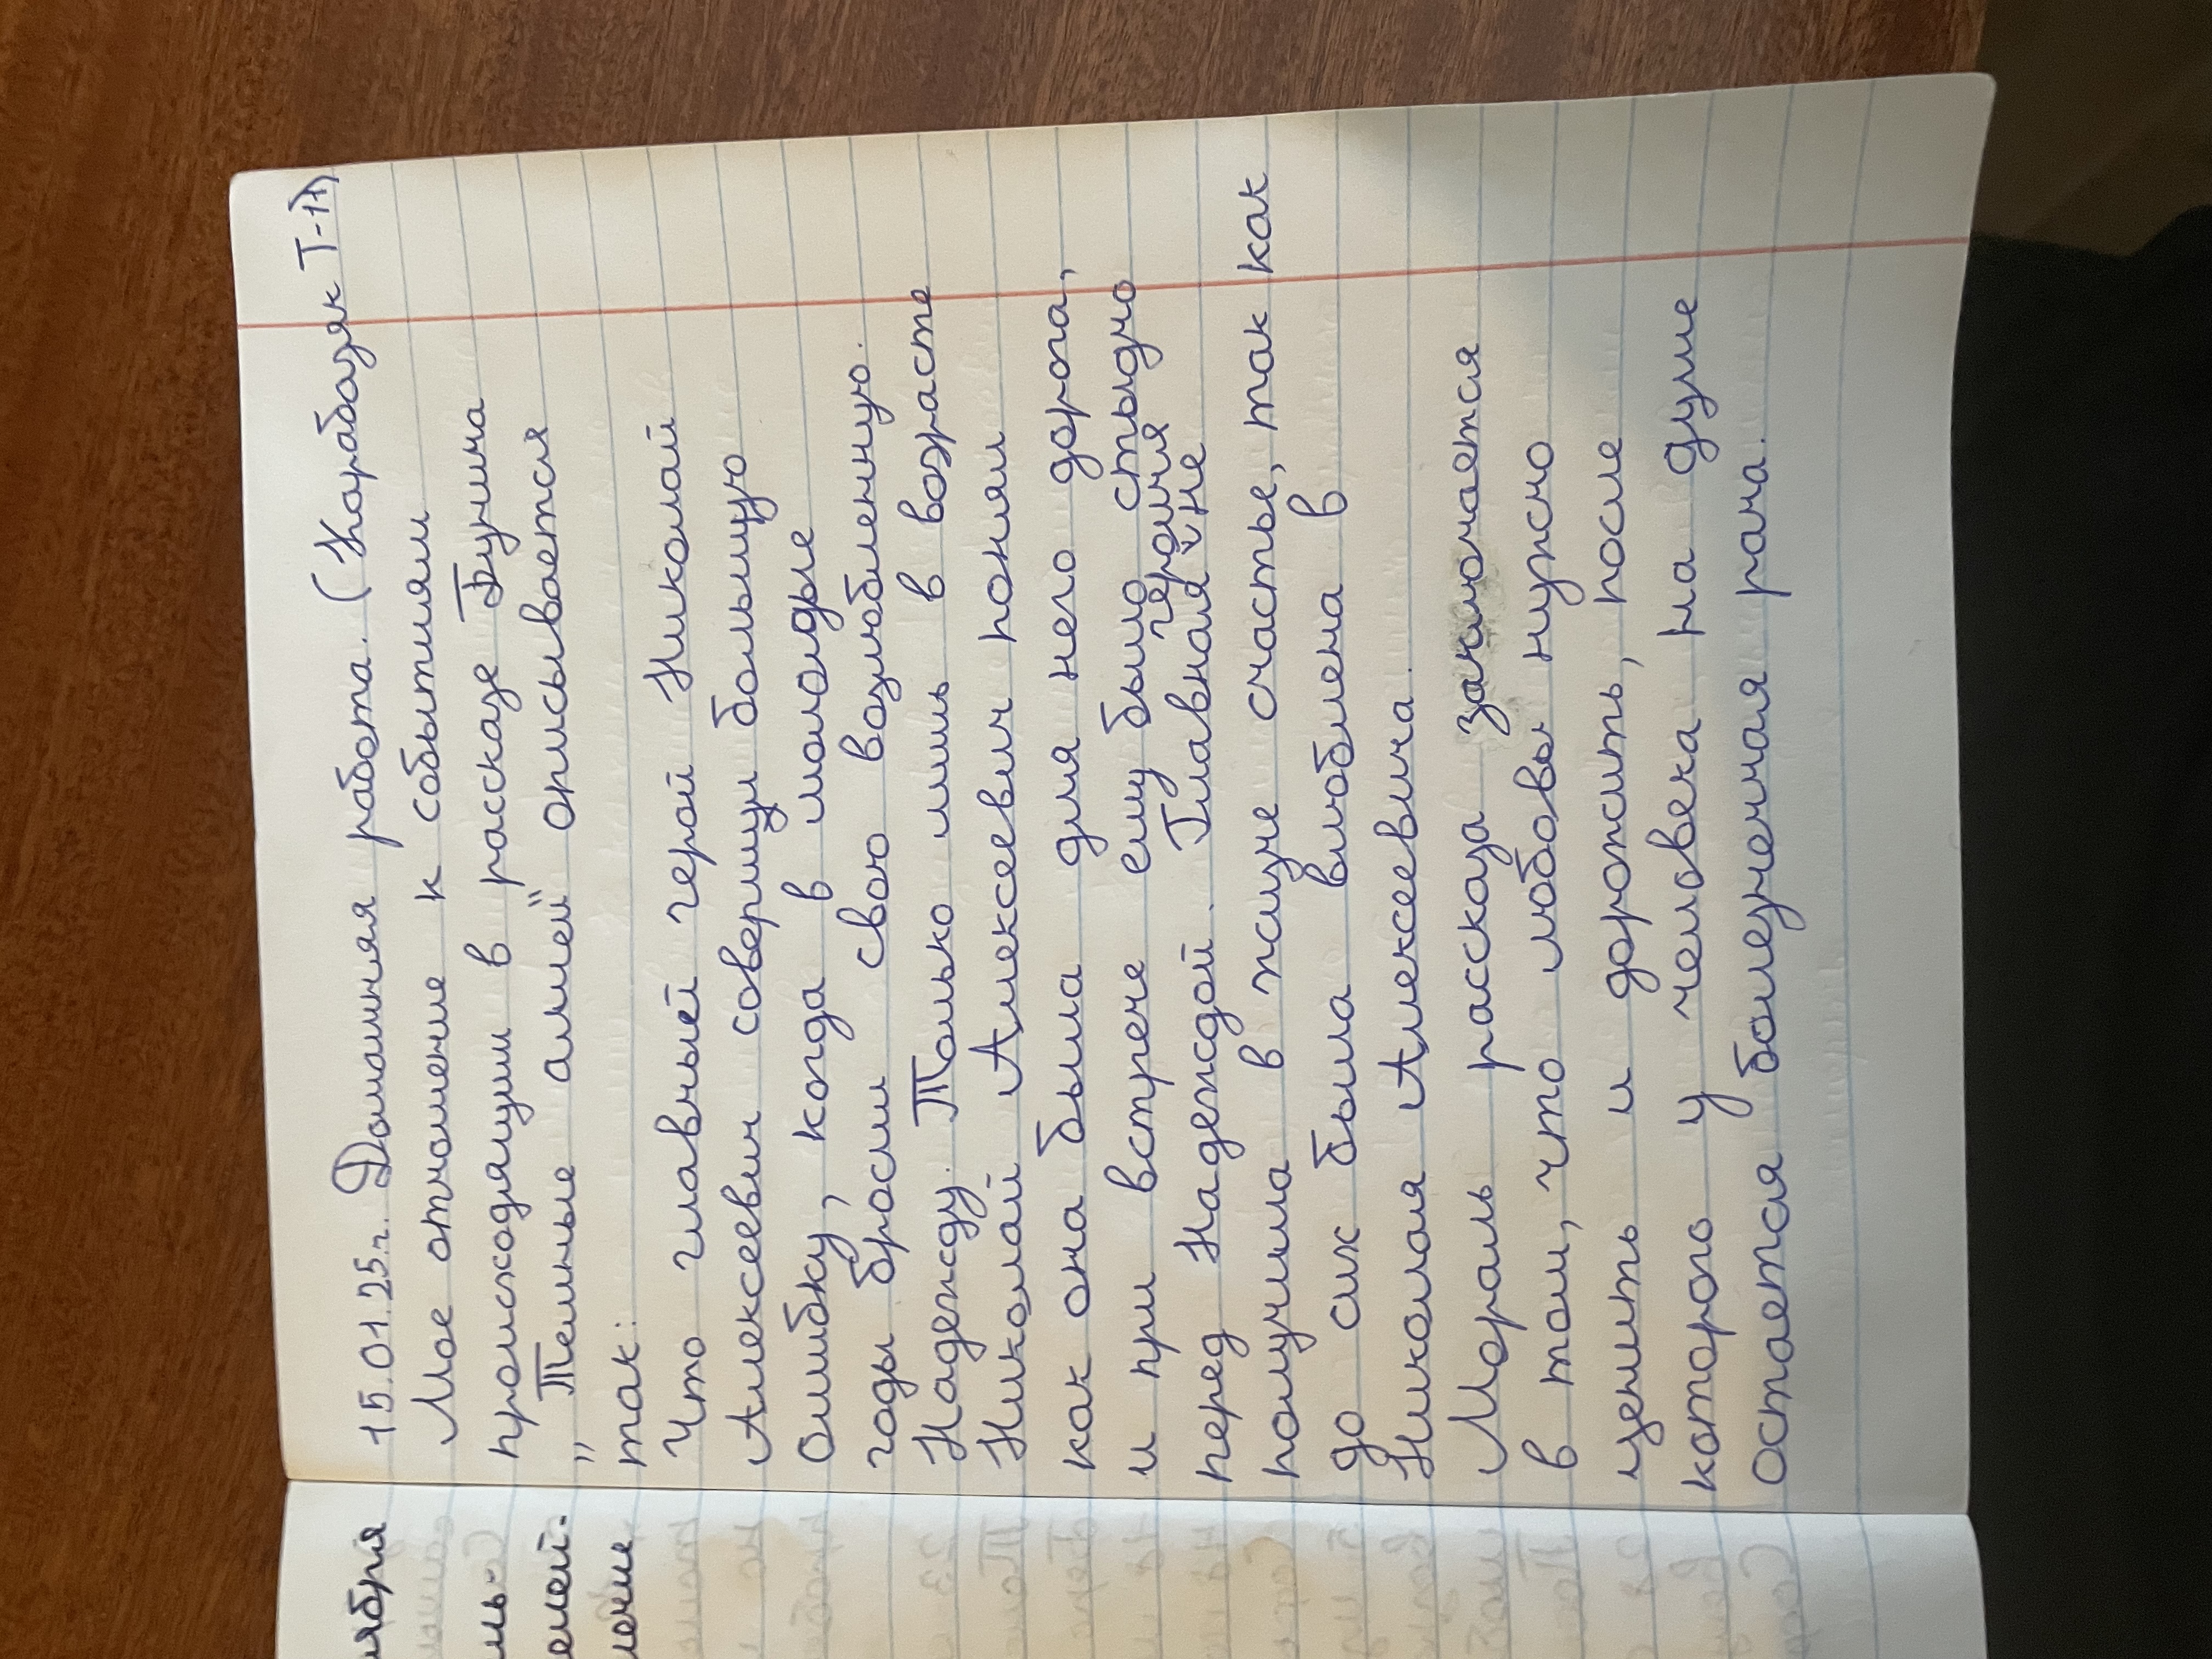 15.01.25г. Домашняя работа. (Карабазяк Т-11)
Мое отношение к событиям
происходящим в рассказе Бунина
„Темные аллей" описывается
так:
Что главный герой Николай
Алексеевич совершил большую
ошибку, когда в молодые
годы бросил свою возлюбленную
Надежду. Только лишь в возрасте
Николай Алексеевич понял
как она была для него дорога,
и при встрече ему было стыдно
перед Надеждой. Главная героиня не
получила в жизне счастье, так как
до сих была влюблена в
Николая Алексеевича.
Мораль рассказа заключается
в том, что любовь нужно
ценить и дорожить, после
которого у человека на душе
остается болезненная рана.
ября
ль-
елей-
ление